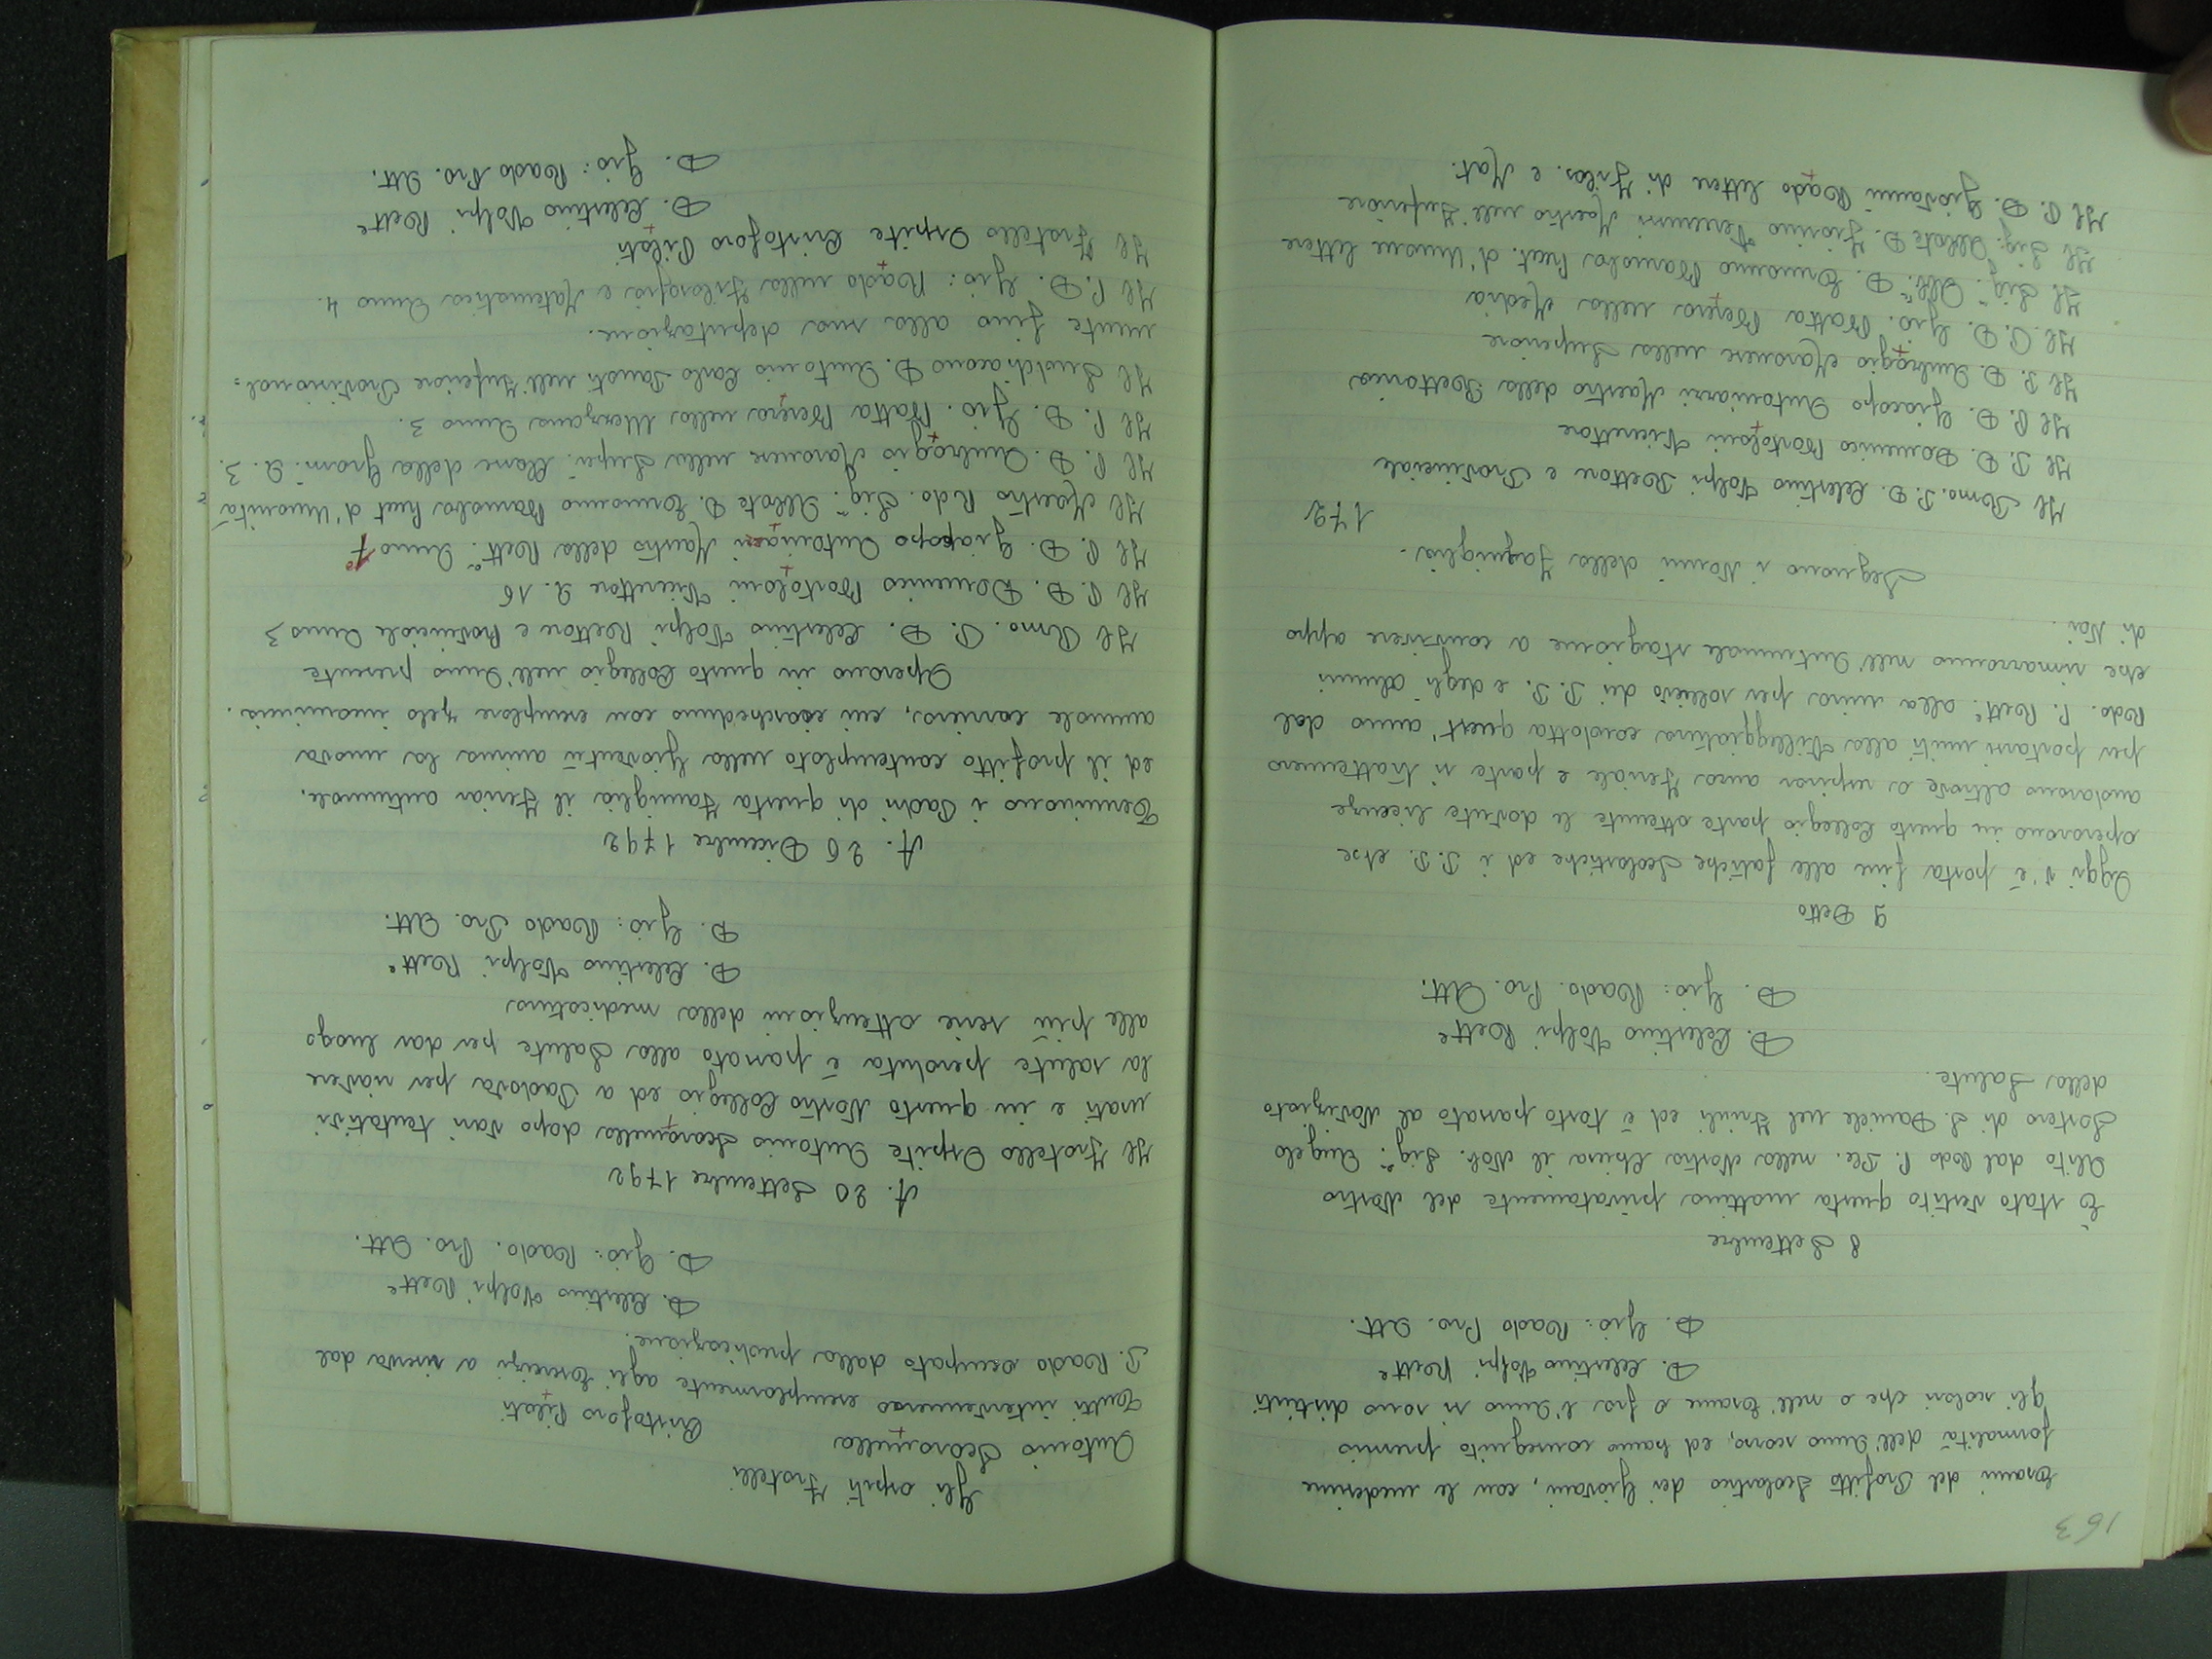 163
Esami del Profitto Scolastico dei Giovani, con le medesime
formalità dell'Anno scorso, ed hanno conseguito premio
gli scolari che o nell'Esame o fra l'Anno si sono distinti
D. Celestino Volpi Rett.e
D. Gio: Rado Pro. Att.
8 Settembre
È stato vestito questa mattina privatamente del Nostro
Abito dal Rdo P. Pre. nella Nostra Chiesa il Nob. Sig.r Angelo
Sostero di S. Daniele nel Friuli ed è tosto passato al Noviziato
della Salute.
D. Celestino Volpi Rett.e
D. Gio: Rado. Pro. Att.
9 Detto
Oggi s'è posta fine alle fatiche Scolastiche ed i P.P. che
operarono in questo Collegio parte ottenute le dovute licenze
andarono altrove a respirar aura Feriale e parte si trattennero
per portarsi uniti alla Villeggiatura condotta quest'anno dal
Rdo. P. Rett.e alla mira per sollievo dei P.P. e degli alunni
che rimarranno nell'Autunnale stagione a convivere appo
di Noi.
Seguono i Nomi della Famiglia.
172
Il Rmo. P. D. Celestino Volpi Rettore e Provinciale
Il P. D. Domenico Bortolani Vicerettore
Il P. D. Giacopo Antoniazzi Maestro della Rettorica
Il P. D. Ambrogio Maronese nella Superiore
Il P. D. Gio. Batta Besio nella Media
Il Sig.r Ab.e D. Ermanno Barnaba Precet. d'Umane lettere
Il Sig. Abbate D. Fiorino Vercesini Maestro nell'Inferiore
Il P. D. Giovanni Rado lettore di Filos. e Mat.
Gli ospiti Fratelli
Antonio Scaramella
Cristoforo Pilati
Tutti intervennero esemplarmente agli Esercizi a riserva dal
P. Rado occupato dalla predicazione.
D. Celestino Volpi Rett.e
D. Gio: Rado. Pro. Att.
A. 20 Settembre 1792
Il Fratello Ospite Antonio Scaramella dopo vari tentativi
usati e in questo Nostro Collegio ed a Padova per riavere
la salute perduta è passato alla Salute per dar luogo
alle più serie attenzioni della medicatura
D. Celestino Volpi Rett.e
D. Gio: Rado Pro. Att.
A. 26 Dicembre 1792
Terminano i Padri di questa Famiglia il Feriar autunnale,
ed il profitto contemplato nella Gioventù anima la nuova
annuale carriera, cui eschedino con esemplare zelo incomincia.
Operano in questo Collegio nell'Anno presente
Il Rmo. P. D. Celestino Volpi Rettore e Provinciale Anno 3
Il P. D. Domenico Bortolani Vicerettore A. 16
Il P. D. Giacopo Antoniazzi Maestro della Rett.a Anno 7°
Il Maestro Rdo. Sig.r Abbate D. Ermanno Barnaba Precet d'Umanità
Il P. D. Ambrogio Maronese nella Super. Classe della Gram. A. 3.
Il P. D. Gio. Batta Besio nella Mezzana Anno 3.
Il Suddiacono D. Antonio Carlo Panoti nell'Inferiore Provisional=
mente fino alla sua deputazione.
Il P. D. Gio: Rado nella Filosofia e Matematica Anno 4.
Il Fratello Ospite Cristoforo Pilati
D. Celestino Volpi Rett.e
D. Gio: Rado Pro. Att.